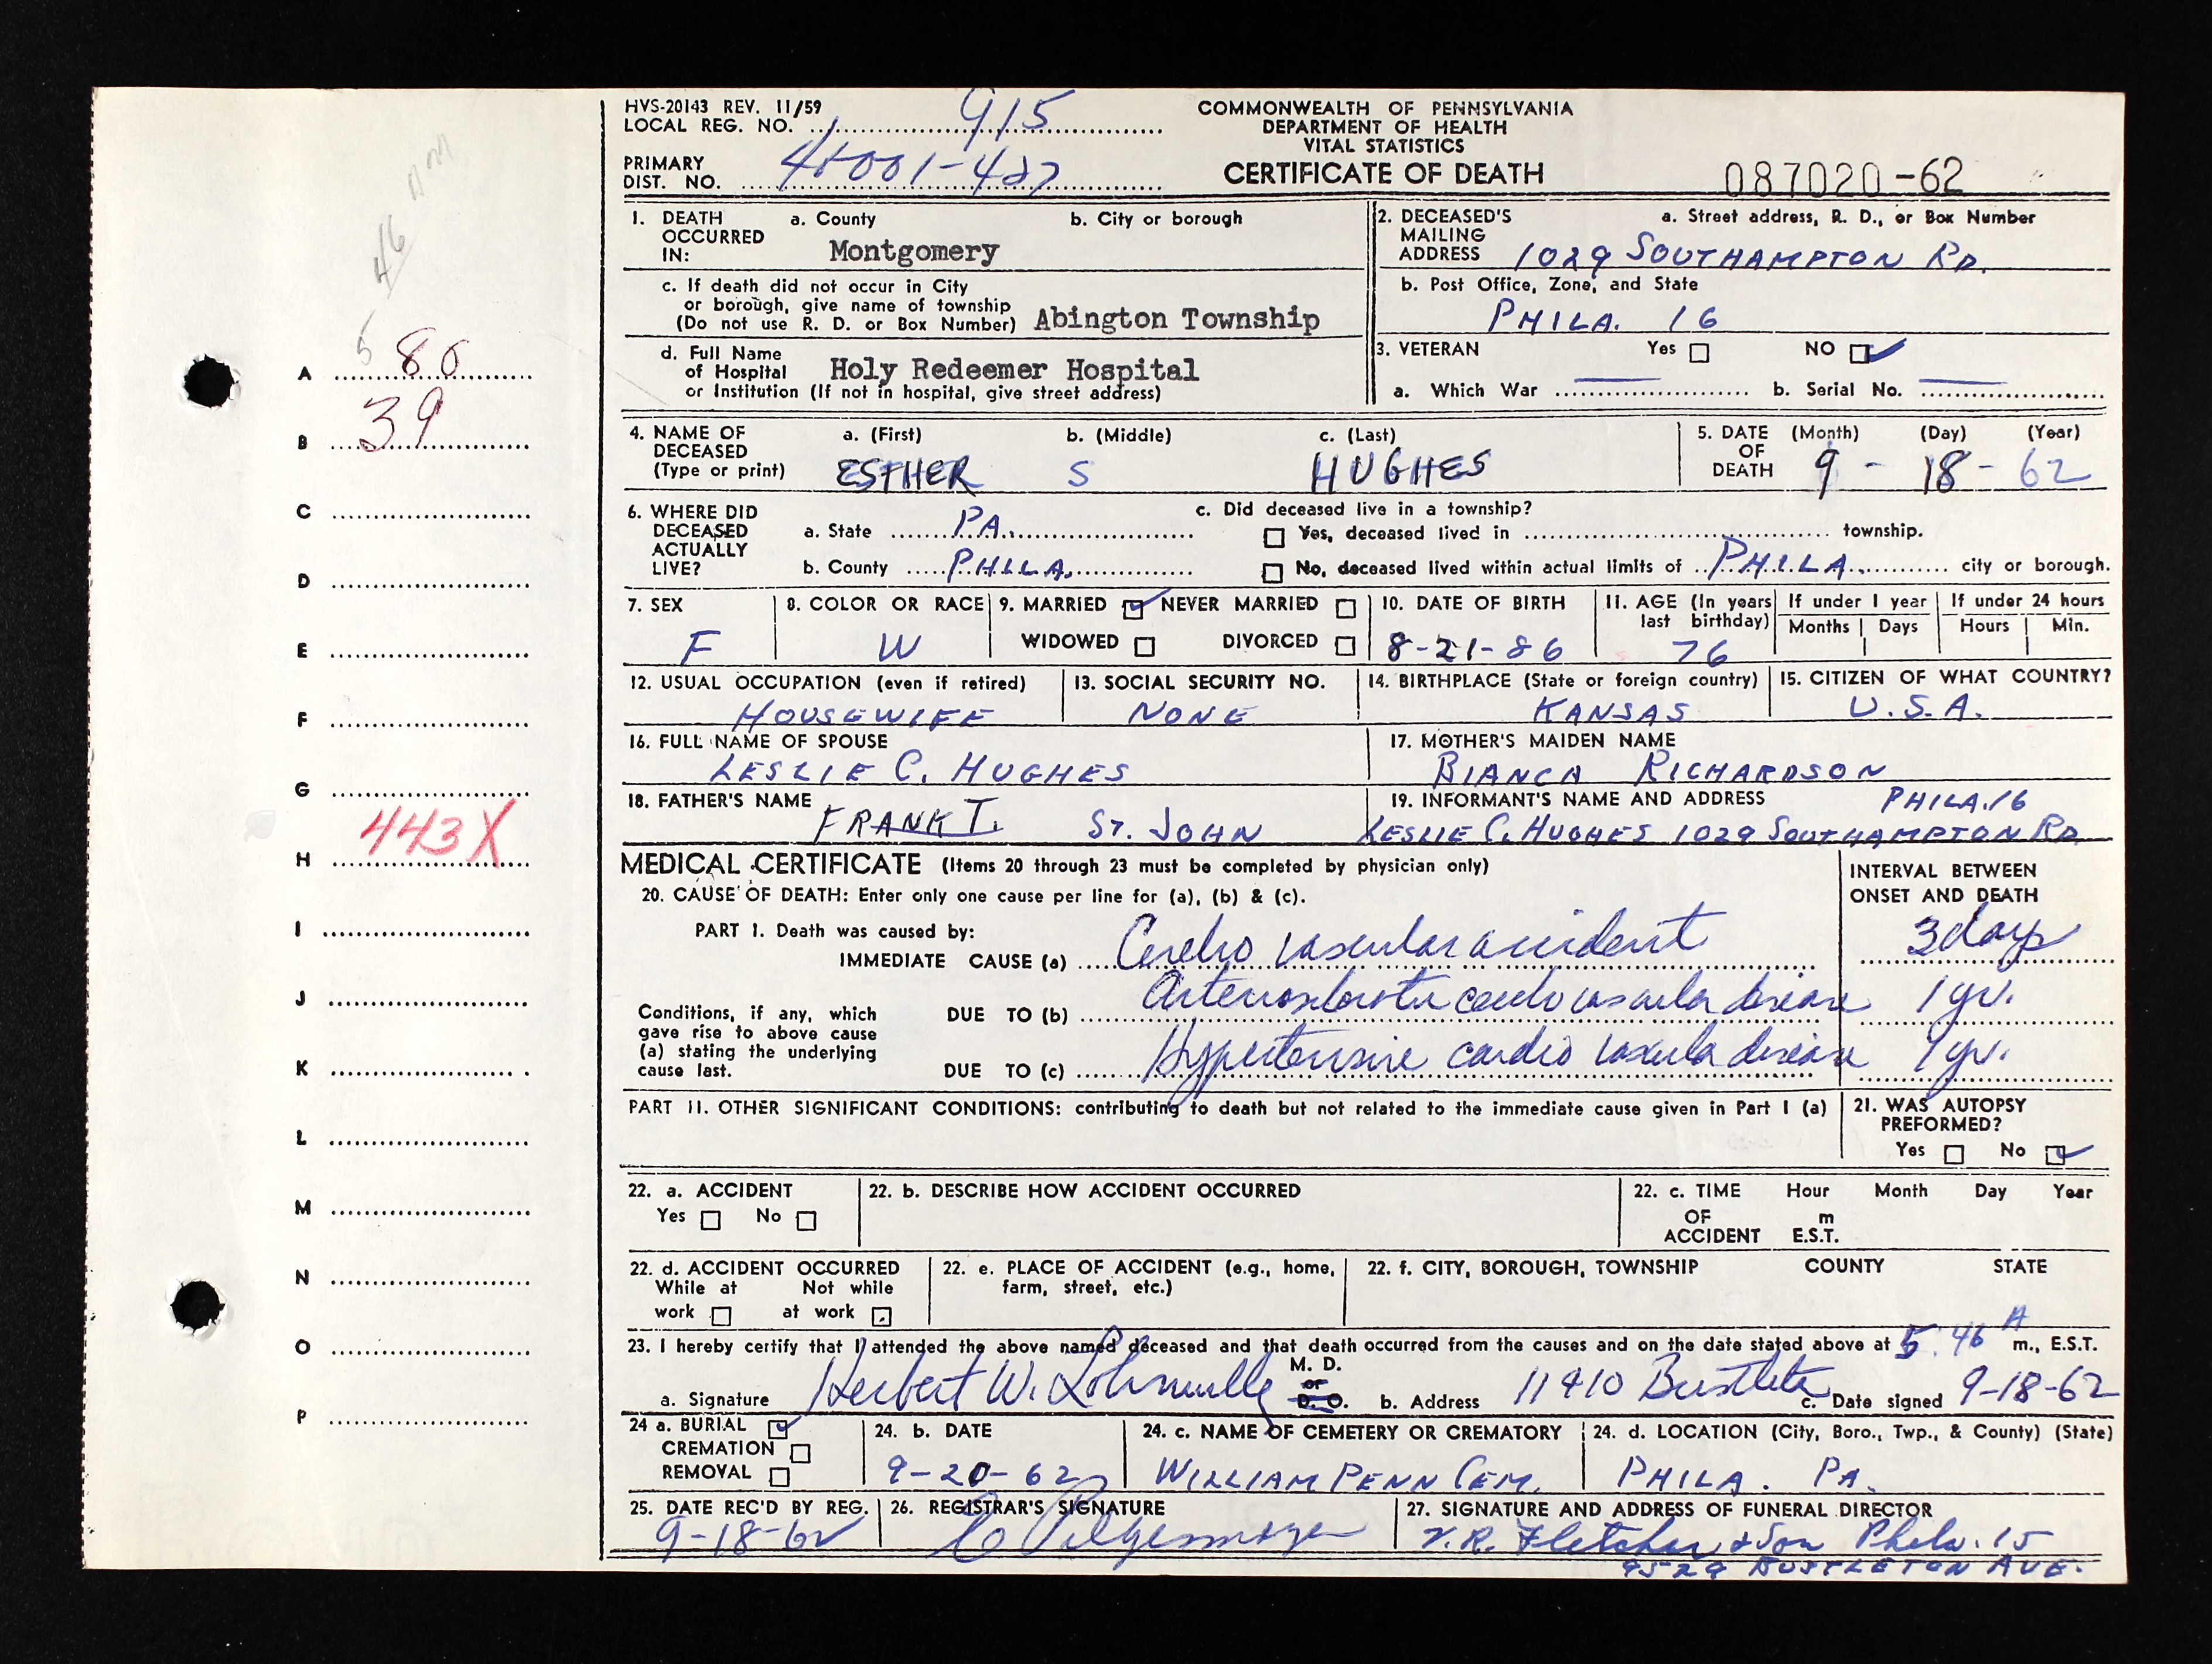 HVS-20143 REV. 11/59
LOCAL REG. NO. 915
COMMONWEALTH OF PENNSYLVANIA
DEPARTMENT OF HEALTH
VITAL STATISTICS
CERTIFICATE OF DEATH
PRIMARY
DIST. NO.
087020-62
1. DEATH OCCURRED IN: a. County b. City or borough
Montgomery
c. If death did not occur in City
or borough, give name of township
(Do not use R. D. or Box Number) Abington Township
d. Full Name
of Hospital Holy Redeemer Hospital
or Institution (If not in hospital, give street address)
2. DECEASED'S MAILING ADDRESS a. Street address, R. D., or Box Number
1029 SOUTHAMPTON RD.
b. Post Office, Zone, and State
PHILA. 16
3. VETERAN Yes NO
a. Which War b. Serial No.
4. NAME OF DECEASED (Type or print) a. (First) b. (Middle) c. (Last)
ESTHER S HUGHES
5. DATE OF DEATH (Month) (Day) (Year)
9 - 18 - 62
6. WHERE DID DECEASED ACTUALLY LIVE?
a. State PA.
b. County PHILA.
c. Did deceased live in a township?
Yes, deceased lived in township.
No, deceased lived within actual limits of PHILA. city or borough.
7. SEX
F
8. COLOR OR RACE
W
9. MARRIED NEVER MARRIED
WIDOWED DIVORCED
10. DATE OF BIRTH
8-21-86
11. AGE (In years last birthday)
76
If under 1 year
Months Days
If under 24 hours
Hours Min.
12. USUAL OCCUPATION (even if retired)
HOUSEWIFE
13. SOCIAL SECURITY NO.
NONE
14. BIRTHPLACE (State or foreign country)
KANSAS
15. CITIZEN OF WHAT COUNTRY?
U.S.A.
16. FULL NAME OF SPOUSE
LESLIE C. HUGHES
17. MOTHER'S MAIDEN NAME
BIANCA RICHARDSON
18. FATHER'S NAME
FRANK T. ST. JOHN
19. INFORMANT'S NAME AND ADDRESS PHILA. 16
LESLIE C. HUGHES 1029 SOUTHAMPTON RD
MEDICAL CERTIFICATE (Items 20 through 23 must be completed by physician only)
20. CAUSE OF DEATH: Enter only one cause per line for (a), (b) & (c).
INTERVAL BETWEEN
ONSET AND DEATH
PART I. Death was caused by:
IMMEDIATE CAUSE (a) Cerebro vascular accident 3 days
Conditions, if any, which
gave rise to above cause
(a) stating the underlying
cause last.
DUE TO (b) Arteriosclerotic cerebro vascular disease 1 yr.
DUE TO (c) Hypertensive cardio vascular disease yr.
PART II. OTHER SIGNIFICANT CONDITIONS: contributing to death but not related to the immediate cause given in Part I (a)
21. WAS AUTOPSY
PREFORMED?
Yes No
22. a. ACCIDENT
Yes No
22. b. DESCRIBE HOW ACCIDENT OCCURRED
22. c. TIME OF ACCIDENT Hour Month Day Year
m
E.S.T.
22. d. ACCIDENT OCCURRED
While at Not while
work at work
22. e. PLACE OF ACCIDENT (e.g., home,
farm, street, etc.)
22. f. CITY, BOROUGH, TOWNSHIP COUNTY STATE
23. I hereby certify that I attended the above named deceased and that death occurred from the causes and on the date stated above at 5:46 A m., E.S.T.
a. Signature Herbert W. M. D. or D. O. b. Address 11910 c. Date signed 9-18-62
24 a. BURIAL
CREMATION
REMOVAL
24. b. DATE
9-20-62
24. c. NAME OF CEMETERY OR CREMATORY
WILLIAM PENN CEM.
24. d. LOCATION (City, Boro., Twp., & County) (State)
PHILA. PA.
25. DATE REC'D BY REG.
9-18-62
26. REGISTRAR'S SIGNATURE
27. SIGNATURE AND ADDRESS OF FUNERAL DIRECTOR
Fletcher & Son Phila. 15
9529 BUSTLETON AVE.
5 46 AM
A 80
B 39
C
D
E
F
G
H 443X
I
J
K
L
M
N
O
P